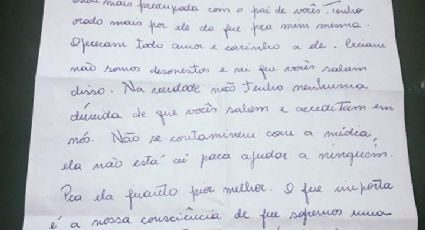 estou mais preocupada com o pai de vocês. Tenho
orado mais por ele do que pra mim mesma.
Ofereçam todo amor e carinho a ele.
não somos desonestos e sei que vocês sabem
disso. Na verdade não tenho nenhuma
dúvida de que vocês sabem e acreditam em
nós. Não se contaminem com a mídia,
ela não está aí para ajudar a ninguém.
Pra ela quanto pior melhor. O que importa
é a nossa consciência de que sofremos uma